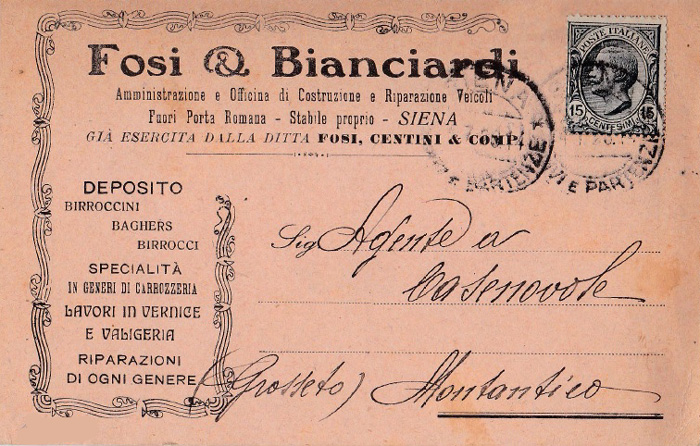 Fosi & Bianciardi
Amministrazione e Officina di Costruzione e Riparazione Veicoli
Fuori Porta Romana - Stabile proprio - SIENA
GIÀ ESERCITA DALLA DITTA FOSI, CENTINI & COMP.
POSTE ITALIANE
15 15
CENTESIMI
SIENA
E PARTENZE
E PARTENZE
DEPOSITO
BIRROCCINI
BAGHERS
BIRROCCI
SPECIALITÀ
IN GENERI DI CARROZZERIA
LAVORI IN VERNICE
E VALIGERIA
RIPARAZIONI
DI OGNI GENERE
Sig Agente a
Casenovole
(Grosseto) Montantico